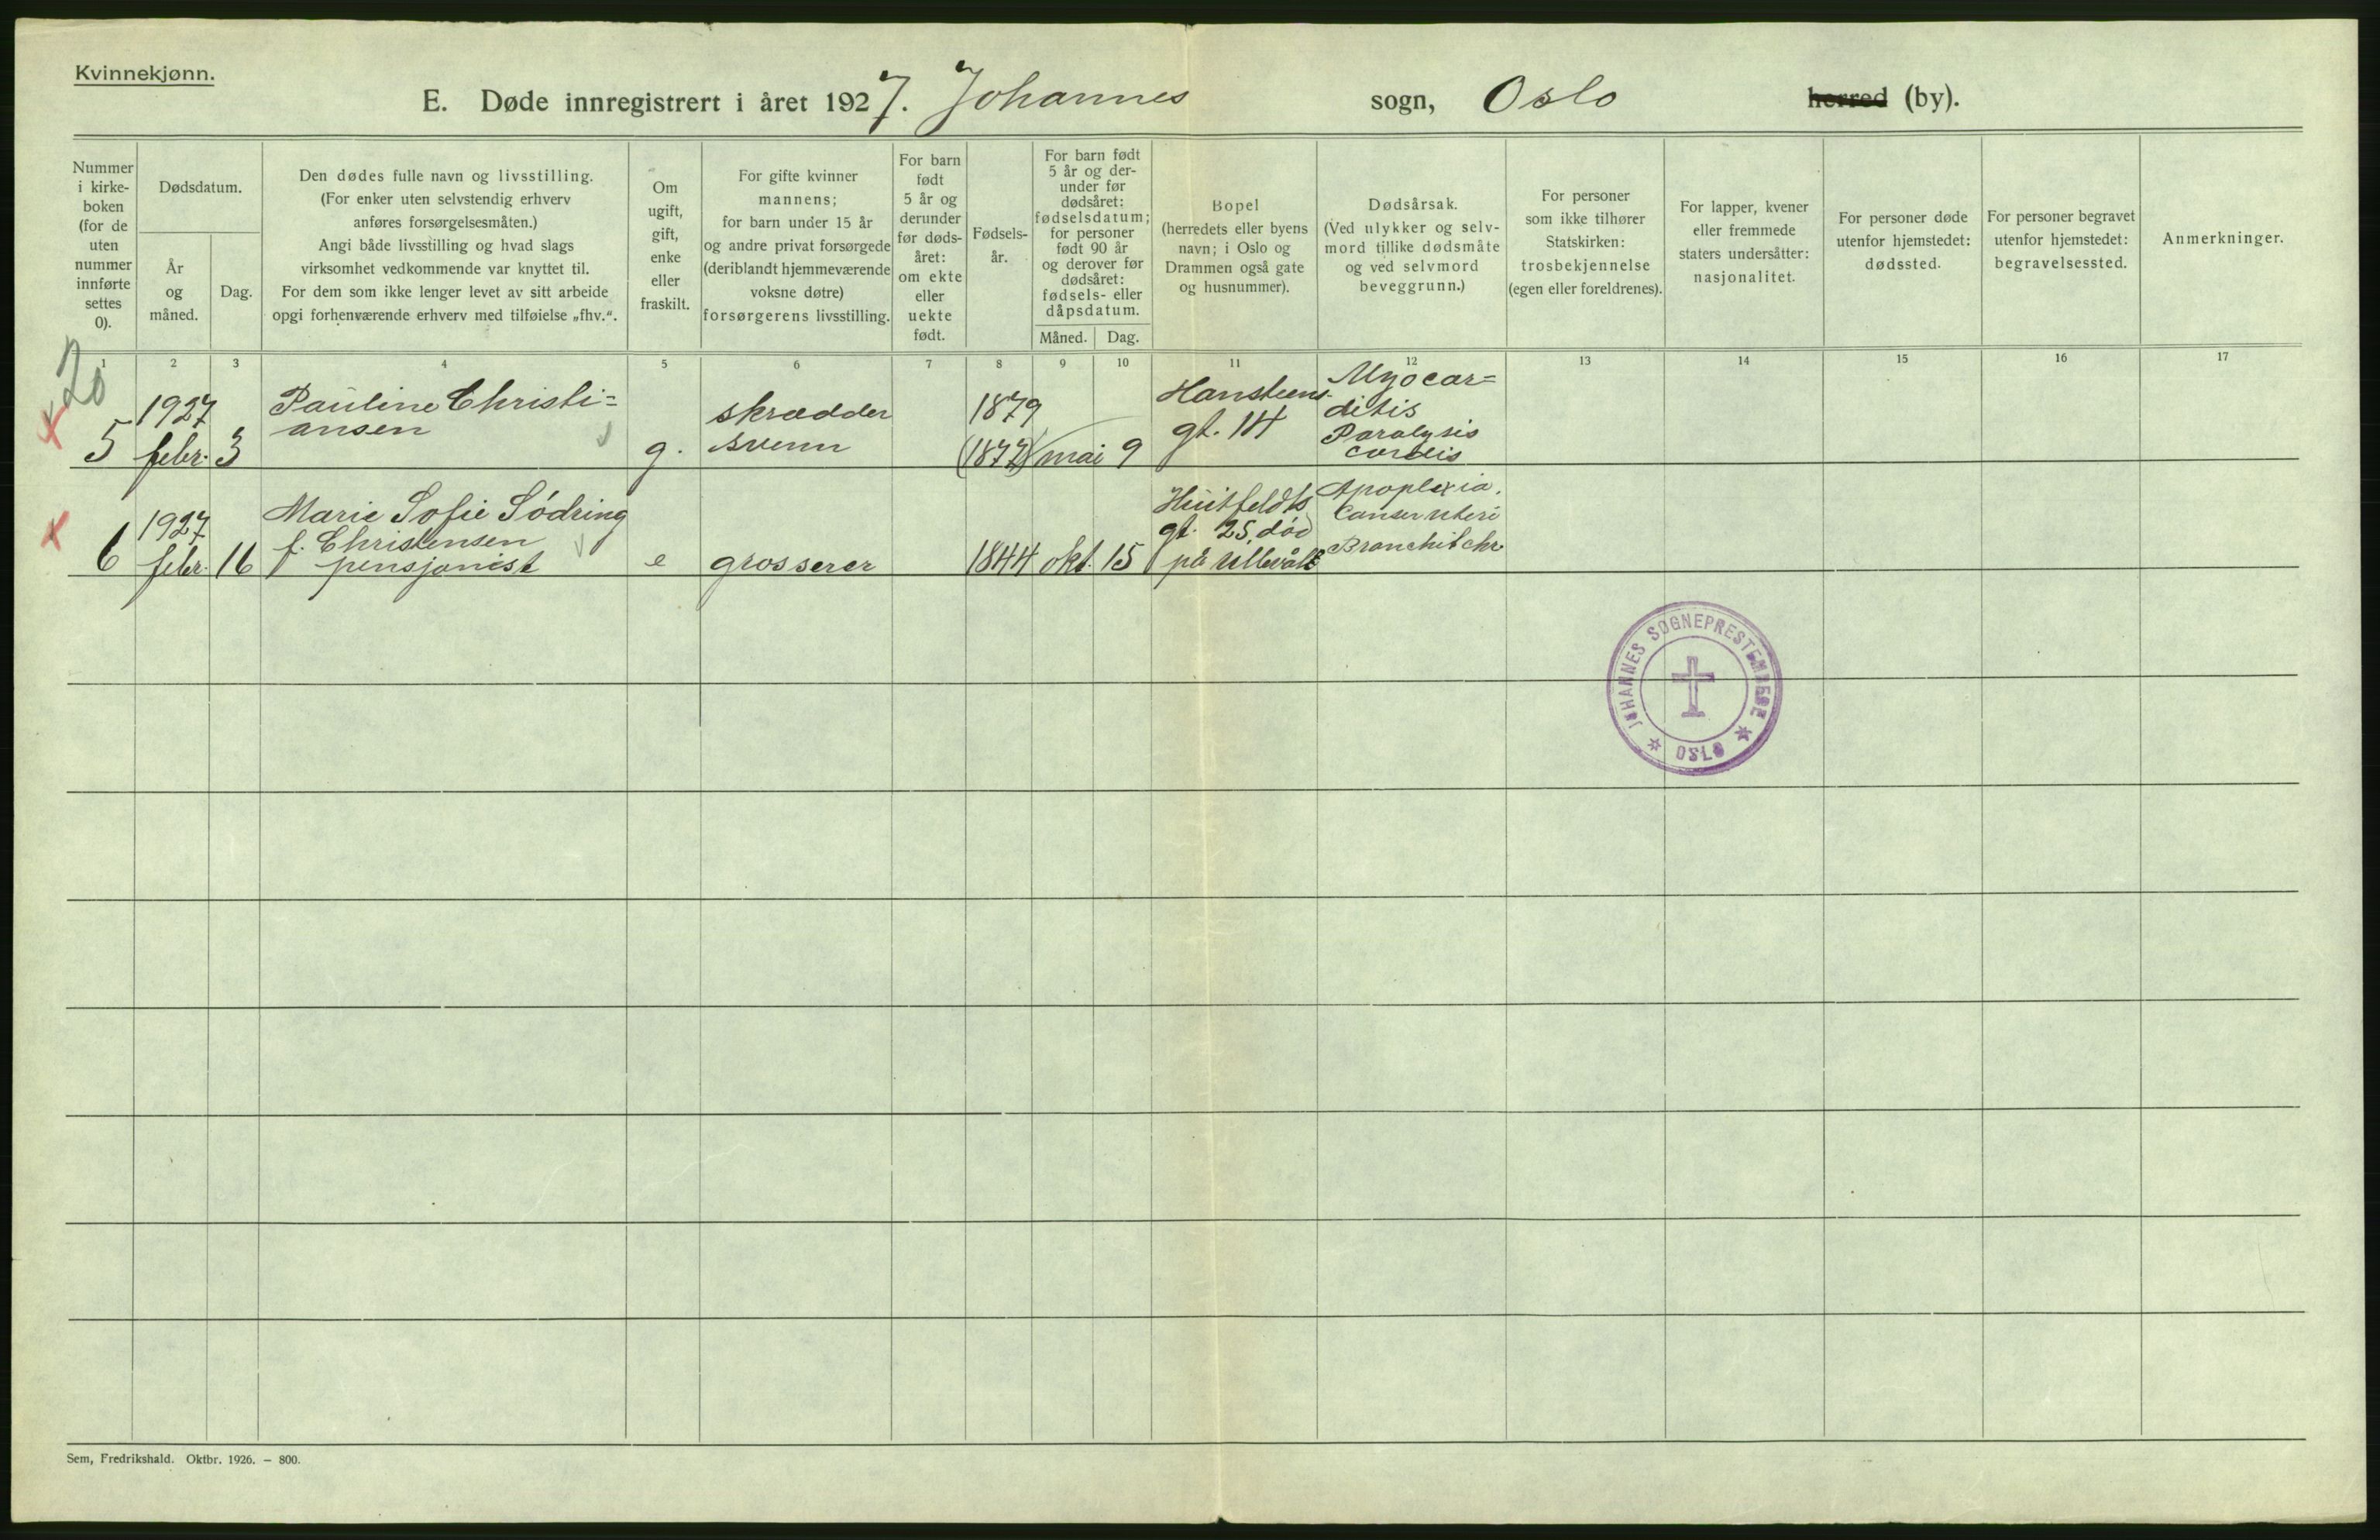 Kvinnekjønn.
E. Døde innregistrert i året 1927. Johannes sogn, Oslo herred (by).
Nummer
i kirke-
boken
(for de
uten
nummer
innførte
settes
0).
Dødsdatum.
År
og
måned.
Dag.
Den dødes fulle navn og livsstilling.
(For enker uten selvstendig erhverv
anføres forsørgelsesmåten.)
Angi både livsstilling og hvad slags
virksomhet vedkommende var knyttet til.
For dem som ikke lenger levet av sitt arbeide
opgi forhenværende erhverv med tilføielse „fhv.“.
Om
ugift,
gift,
enke
eller
fraskilt.
For gifte kvinner
mannens;
for barn under 15 år
og andre privat forsørgede
(deriblandt hjemmeværende
voksne døtre)
forsørgerens livsstilling.
For barn
født
5 år og
derunder
før døds-
året:
om ekte
eller
uekte
født.
Fødsels-
år.
For barn født
5 år og der-
under før
dødsåret:
fødselsdatum;
for personer
født 90 år
og derover før
dødsåret:
fødsels- eller
dåpsdatum.
Måned. Dag.
Bopel
(herredets eller byens
navn; i Oslo og
Drammen også gate
og husnummer).
Dødsårsak.
(Ved ulykker og selv-
mord tillike dødsmåte
og ved selvmord
beveggrunn.)
For personer
som ikke tilhører
Statskirken:
trosbekjennelse
(egen eller foreldrenes).
For lapper, kvener
eller fremmede
staters undersåtter:
nasjonalitet.
For personer døde
utenfor hjemstedet:
dødssted.
For personer begravet
utenfor hjemstedet:
begravelsessted.
Anmerkninger.
1 2 3 4 5 6 7 8 9 10 11 12 13 14 15 16 17
20
5
1927
febr. 3
Pauline Christi=
ansen
g.
skrædder
svenn
1879
(1872) mai 9
Hansteens
gt. 14
Myocar=
ditis
Paralysis
cordis
6
1927
febr. 16
Marie Sofie Södring
f. Christensen
pensjonist
e
grosserer
1844 okt. 15
Huitfeldts
gt. 25, död
på Ullevål
Apoplexia.
Cancer uteri
Bronchit chr.
JOHANNES SOGNEPRESTEMBEDE
OSLO
Sem, Fredrikshald. Oktbr. 1926. – 800.